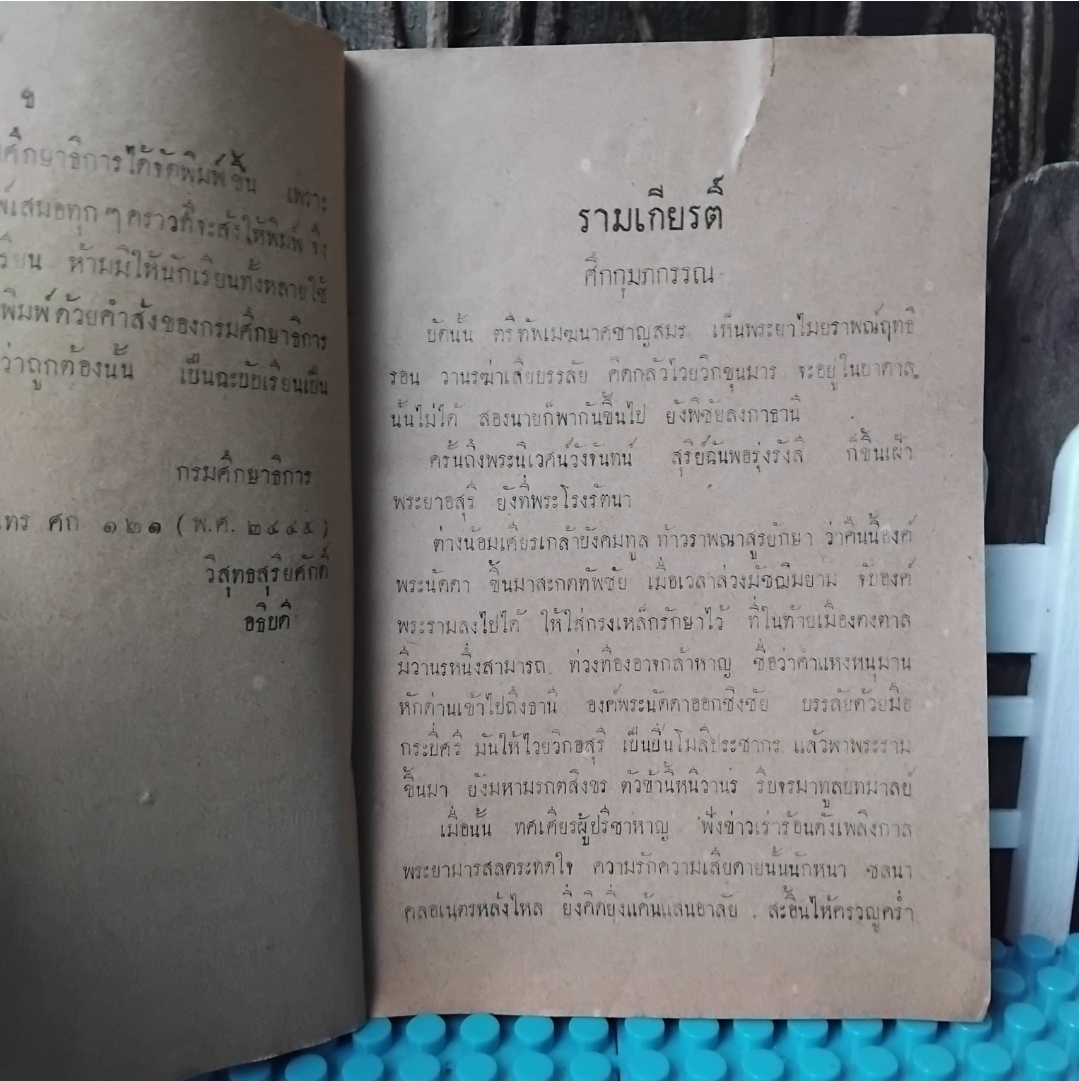 ข
ศึกษาธิการได้จัดพิมพ์ขึ้น เพราะ
พ์เสมอทุก ๆ คราวที่จะสั่งให้พิมพ์ จึง
เรียน ห้ามมิให้นักเรียนทั้งหลายใช้
พิมพ์ด้วยคำสั่งของกรมศึกษาธิการ
ว่าถูกต้องนั้น เป็นฉะบับเรียนเป็น
กรมศึกษาธิการ
ศก ๑๒๑ (พ.ศ. ๒๔๔๕)
วิสุทธสุริยศักดิ์
อธิบดี
รามเกียรติ์
ศึกกุมภกรรณ
บัดนั้น ตรีทัพเมฆนาศชาญสมร เห็นพระยาไมยราพณ์ฤทธิ
รอน วานรฆ่าเสียบรรลัย คิดกลัวไวยวิกขุนมาร จะอยู่ในบาดาล
นั้นไม่ได้ สองนายก็พากันขึ้นไป ยังพิชัยลงกาธานี
ครั้นถึงพระนิเวศน์วังจันทน์ สุริย์ฉันพอรุ่งรังสี ก็ขึ้นเฝ้า
พระยาอสุรี ยังที่พระโรงรัตนา
ต่างน้อมเศียรเกล้าบังคมทูล ท้าวราพณาสูรยักษา ว่าคืนนี้องค์
พระนัดดา ขึ้นมาสะกดทัพชัย เมื่อเวลาล่วงมัชฌิมยาม จับองค์
พระรามลงไปได้ ให้ใส่กรงเหล็กรักษาไว้ ที่ในท้ายเมืองดงตาล
มีวานรหนึ่งสามารถ ท่วงทีองอาจกล้าหาญ ชื่อว่าคำแหงหนุมาน
หักด่านเข้าไปถึงธานี องค์พระนัดดาออกชิงชัย บรรลัยด้วยมือ
กระบี่ศรี มันให้ไวยวิกอสุรี เป็นปิ่นโมลีประชากร แล้วพาพระราม
ขึ้นมา ยังมหามรกตสิงขร ตัวข้านี้หนีวานร รีบจรมาทูลบทมาลย์
เมื่อนั้น ทศเศียรผู้ปรีชาหาญ ฟังข่าวเร่าร้อนดั่งเพลิงกาล
พระยามารสลดระทดใจ ความรักความเสียดายนั้นนักหนา ชลนา
คลอเนตรหลั่งไหล ยิ่งคิดยิ่งแค้นแสนอาลัย สะอื้นไห้ครวญคร่ำ